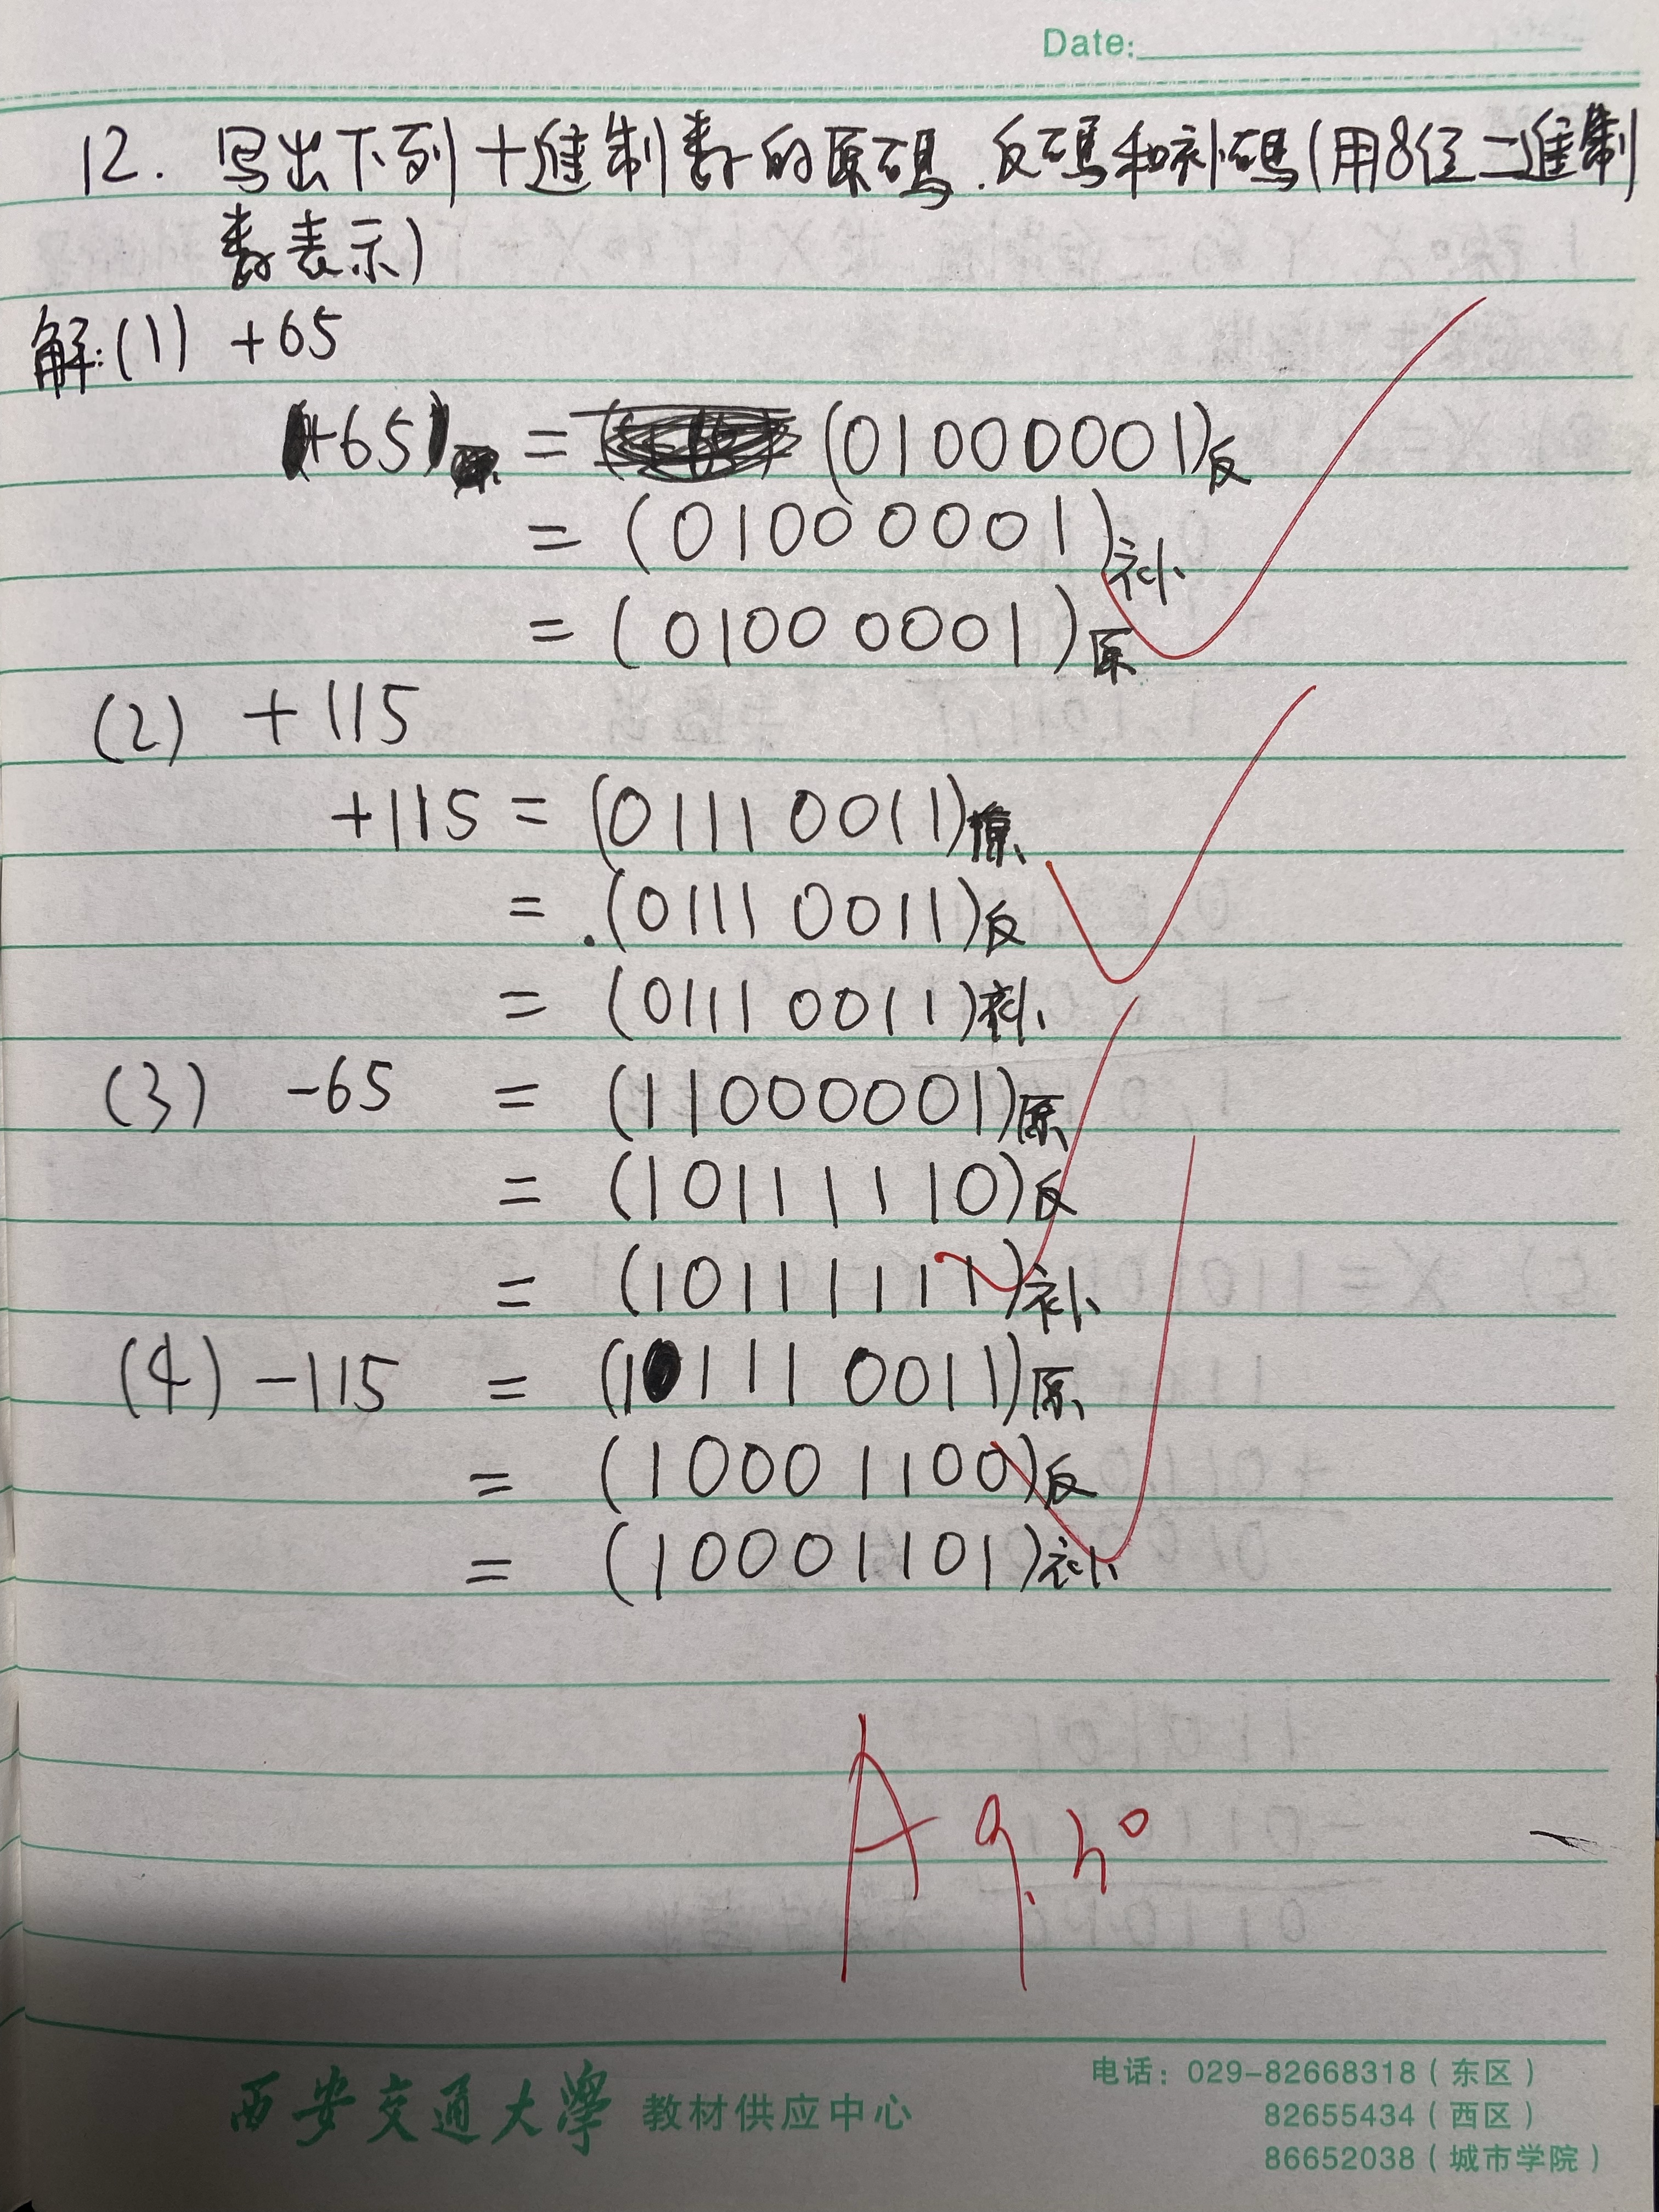 Date:
12. 写出下列十进制数的原码.反码和补码(用8位二进制
数表示)
解:(1) +65
+65 = (01000001)反
= (01000001)补
= (01000001)原
(2) +115
+115 = (01110011)原
= (01110011)反
= (01110011)补
(3) -65 = (11000001)原
= (10111110)反
= (10111111)补
(4) -115 = (11110011)原
= (10001100)反
= (10001101)补
A 9.
西安交通大学 教材供应中心
电话：029-82668318（东区）
82655434（西区）
86652038（城市学院）